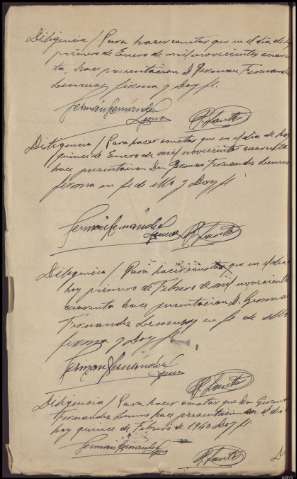 Diligencia / Para hacer constar que en el dia de
primero de Enero de mil novecientos cuaren
ta hace presentacion D. German Fernandez
firma y doy fé.
German Fernandez
Diligencia / Para hacer constar que en el dia de hoy
de Enero de mil novecientos cuarenta
hace presentacion Don German Fernandez
firma en fé de ello y Doy fé
German Fernandez
Diligencia / Para hacer constar que en el dia
hoy primero de Febrero de mil novecientos
cuarenta hace presentacion D. German
Fernandez en fé de ello
firma y doy fé.
German Fernandez
Diligencia / Para hacer constar que Don German
Fernandez hace presentacion en el dia
hoy quince de Febrero de 1940 doy fé.
German Fernandez